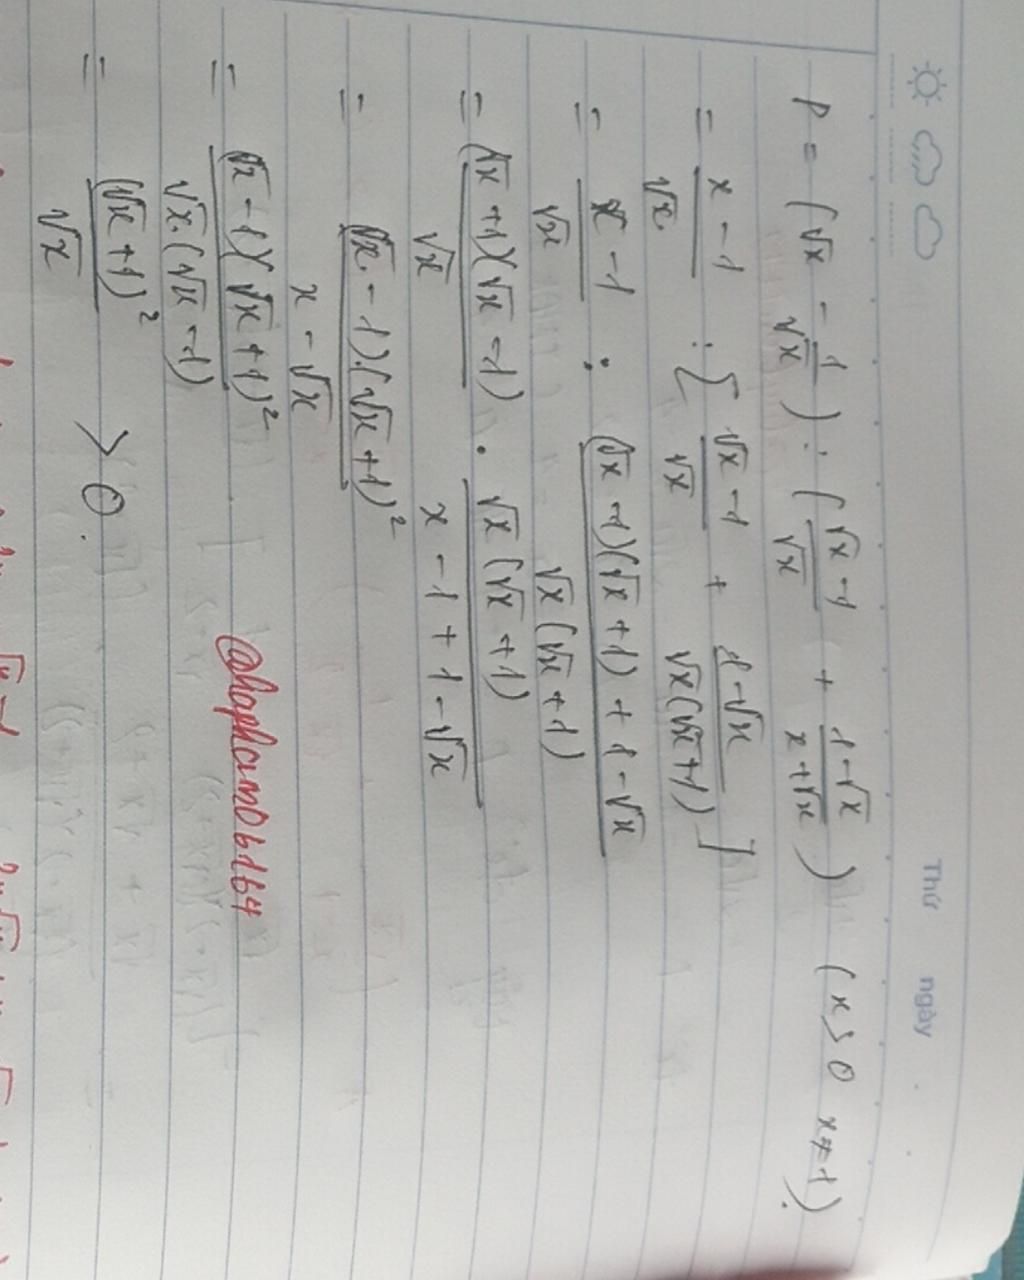 Thứ ngày
P = (√x - 1/√x) : (√x-1/√x + 1-√x/x+√x) (x>0 x≠1).
= x-1/√x : [√x-1/√x + 1-√x/√x(√x+1)]
= x-1/√x : (√x-1)(√x+1)+1-√x/√x(√x+1)
= (√x+1)(√x-1)/√x . √x(√x+1)/x-1+1-√x
= (√x-1).(√x+1)²/x-√x
= (√x-1)(√x+1)²/√x.(√x-1)
@hapham06164
= (√x+1)²/√x > 0.